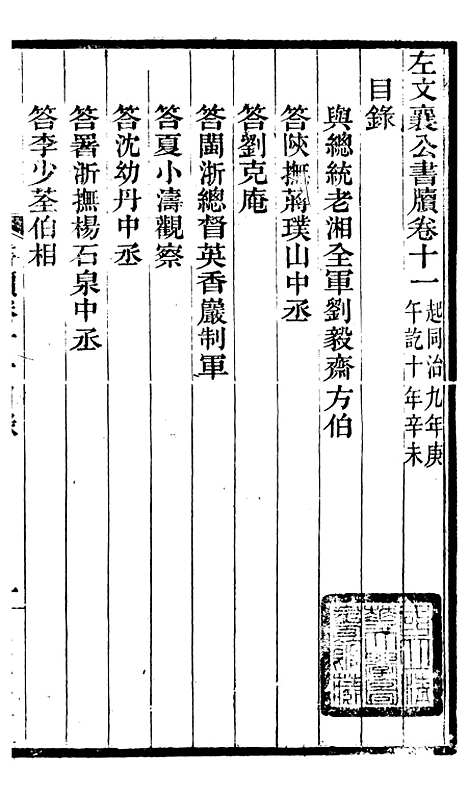 左文襄公書牘卷十一 起同治九年庚午訖十年辛未
目錄
與總統老湘全軍劉毅齋方伯
答陝撫蔣璞山中丞
答劉克庵
答閩浙總督英香巖制軍
答夏小濤觀察
答沈幼丹中丞
答署浙撫楊石泉中丞
答李少荃伯相